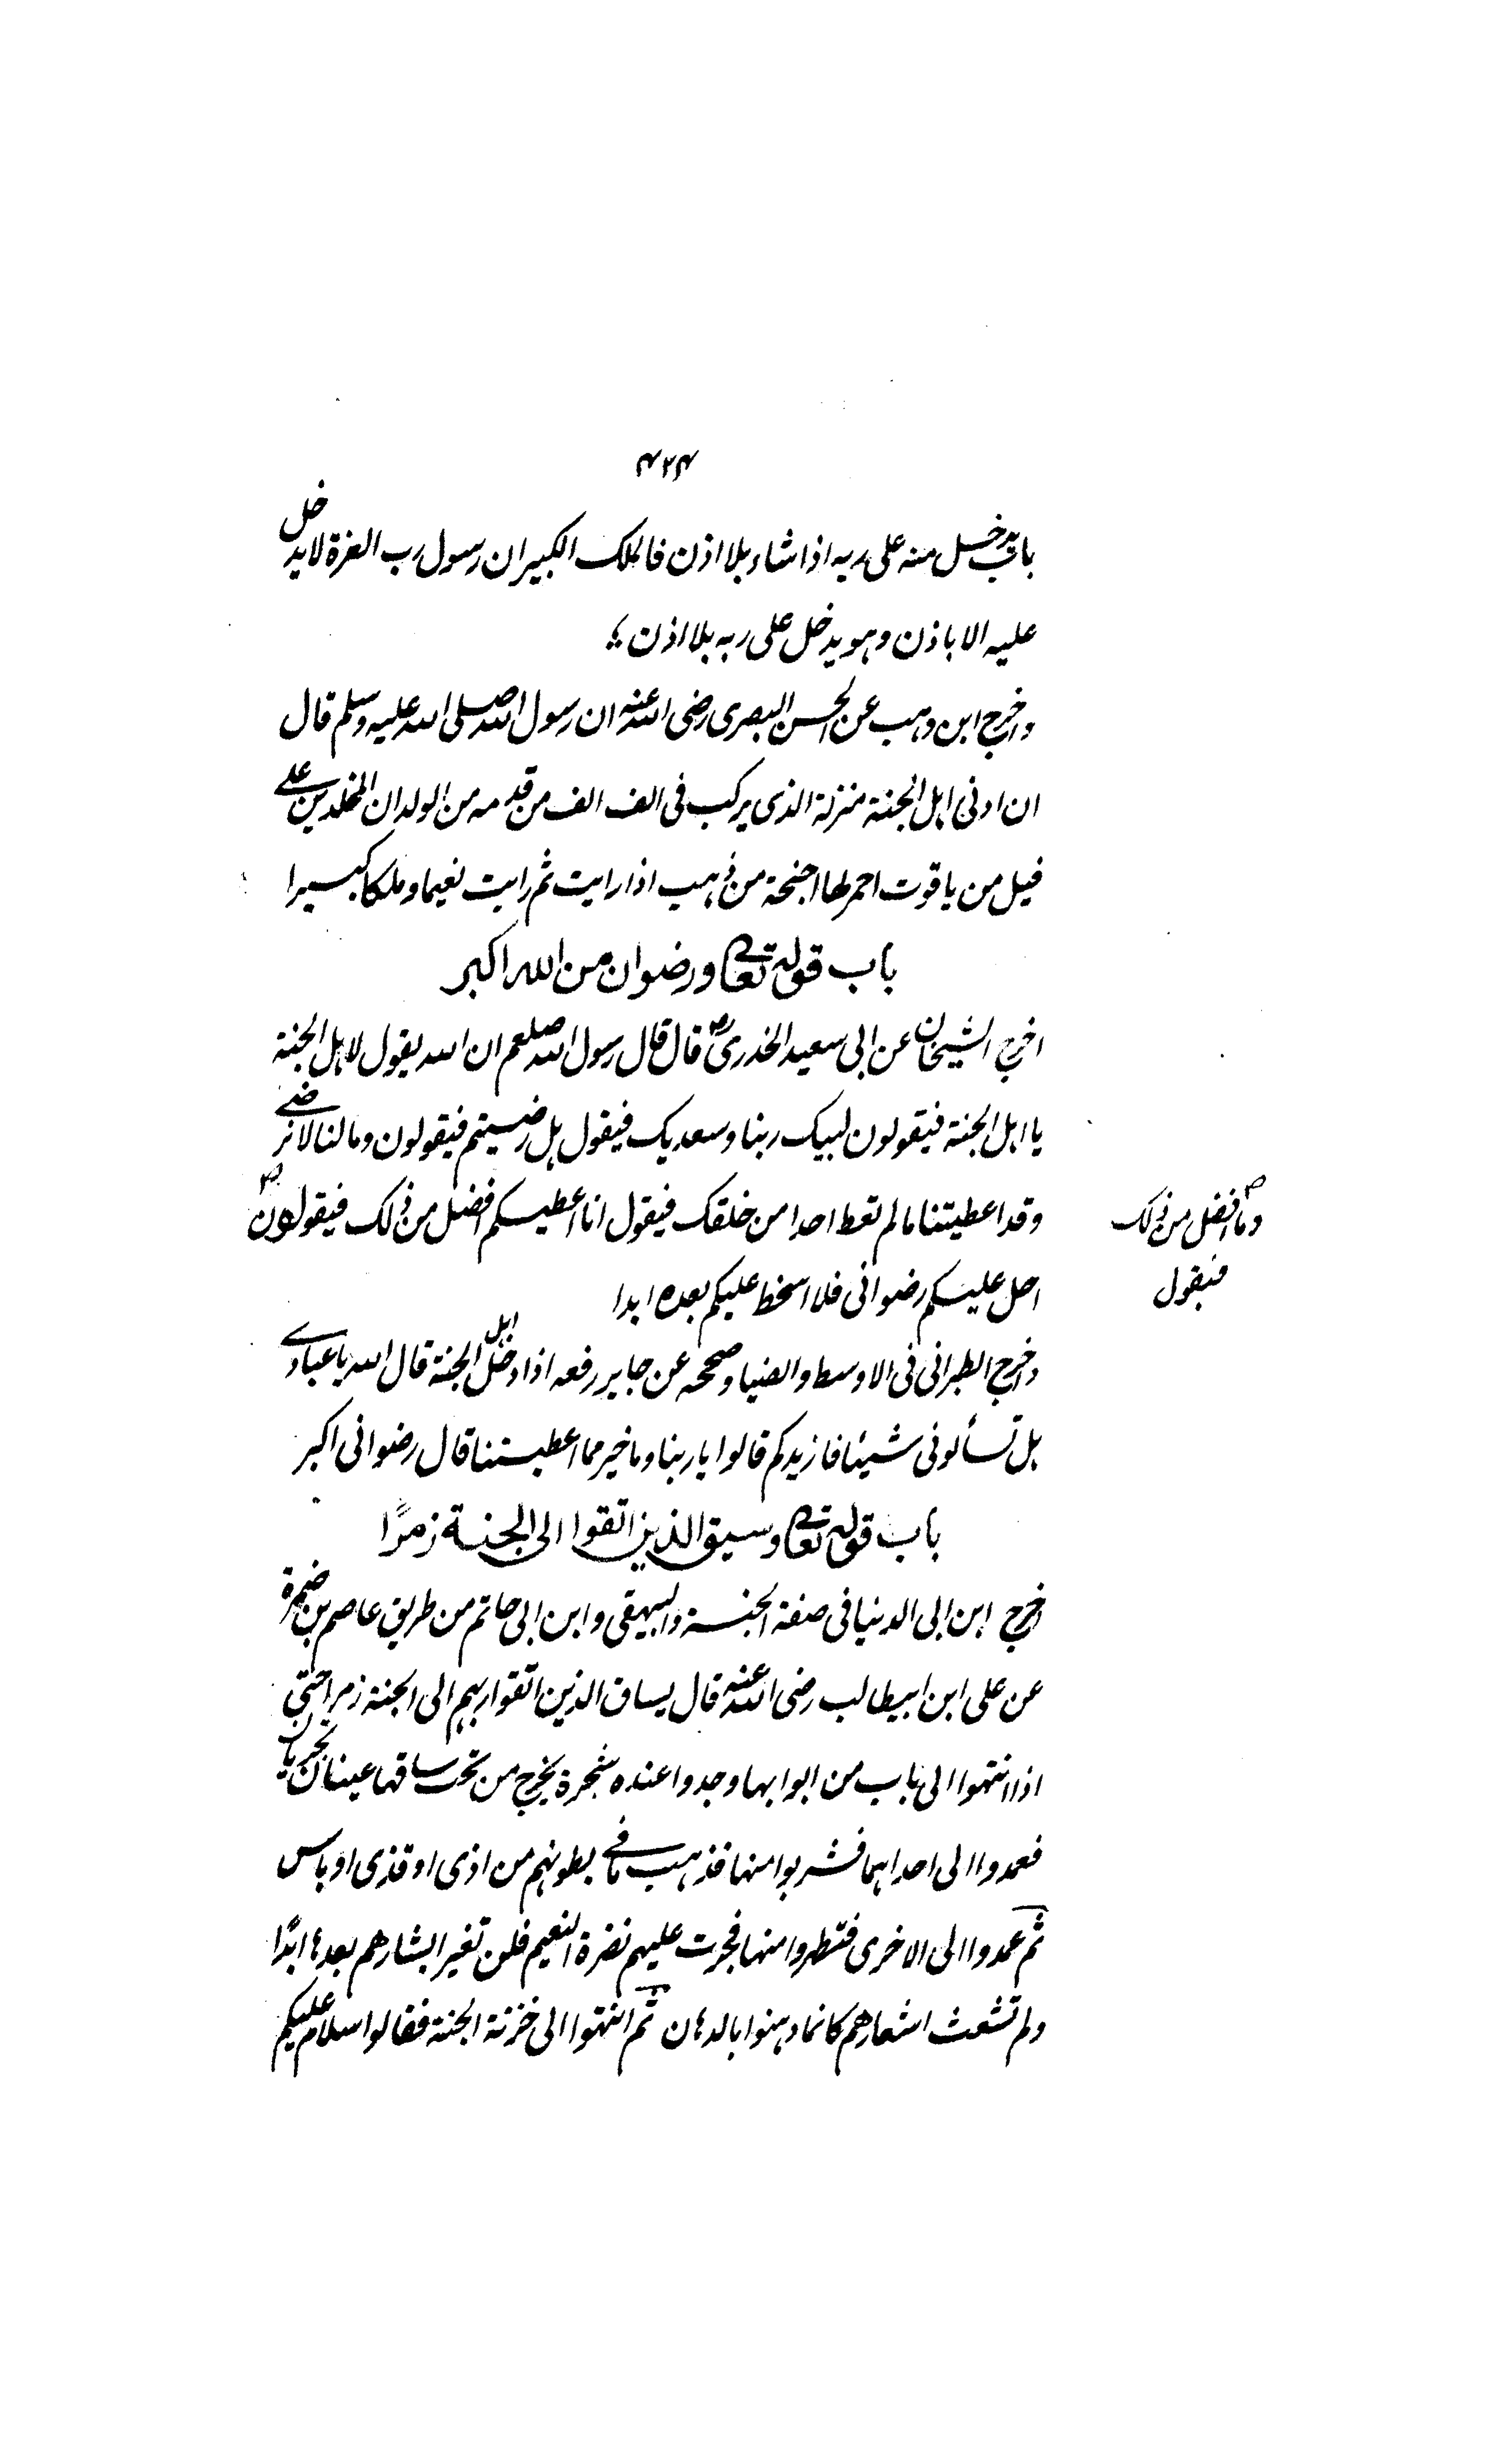 ۴۲۴
باب يدخل منه على ربه اذا شاء بلا اذن فالملك الكبير ان رسول رب العزة لا يدخل
عليه الا باذن وهو يدخل على ربه بلا اذن
واخرج ابن وهب عن الحسن البصرى رضى الله عنه ان رسول الله صلى الله عليه وسلم قال
ان ادنى اهل الجنة منزلة الذى يركب فى الف الف من قدمه من الولدان المخلدين على
خيل من ياقوت احمر لها اجنحة من ذهب اذا رايت ثم رايت نعيما وملكا كبيرا
باب قوله تعالى ورضوان من الله اكبر
اخرج الشيخان عن ابى سعيد الخدرى رض قال قال رسول الله صلعم ان الله يقول لاهل الجنة
يا اهل الجنة فيقولون لبيك ربنا وسعديك فيقول هل رضيتم فيقولون وما لنا لا نرضى
وقد اعطيتنا ما لم تعط احدا من خلقك فيقول انا اعطيكم افضل من ذلك فيقولون
وما افضل من ذلك
فيقول
احل عليكم رضوانى فلا اسخط عليكم بعده ابدا
واخرج الطبرانى فى الاوسط والضيا وصححه عن جابر رفعه اذا دخل اهل الجنة الجنة قال الله يا عبادى
هل تسألونى شيئا فازيدكم قالوا يا ربنا وما خير مما اعطيتنا قال رضوانى اكبر
باب قوله تعالى وسيق الذين اتقوا الى الجنة زمرًا
اخرج ابن ابى الدنيا فى صفة الجنة والبيهقى وابن ابى حاتم من طريق عاصم بن ضمرة
عن على ابن ابيطالب رضى الله عنه قال يساق الذين اتقوا ربهم الى الجنة زمرا حتى
اذا انتهوا الى باب من ابوابها وجدوا عنده شجرة يخرج من تحت ساقها عينان تجريان
فعمدوا الى احداهما فشربوا منها فذهب ما فى بطونهم من اذى او قذى او باس
ثم عمدوا الى الاخرى فتطهروا منها فجرت عليهم نضرة النعيم فلن تغير ابشارهم بعدها ابدًا
ولم تشعث اشعارهم كانما دهنوا بالدهان ثم انتهوا الى خزنة الجنة فقالوا سلام عليكم